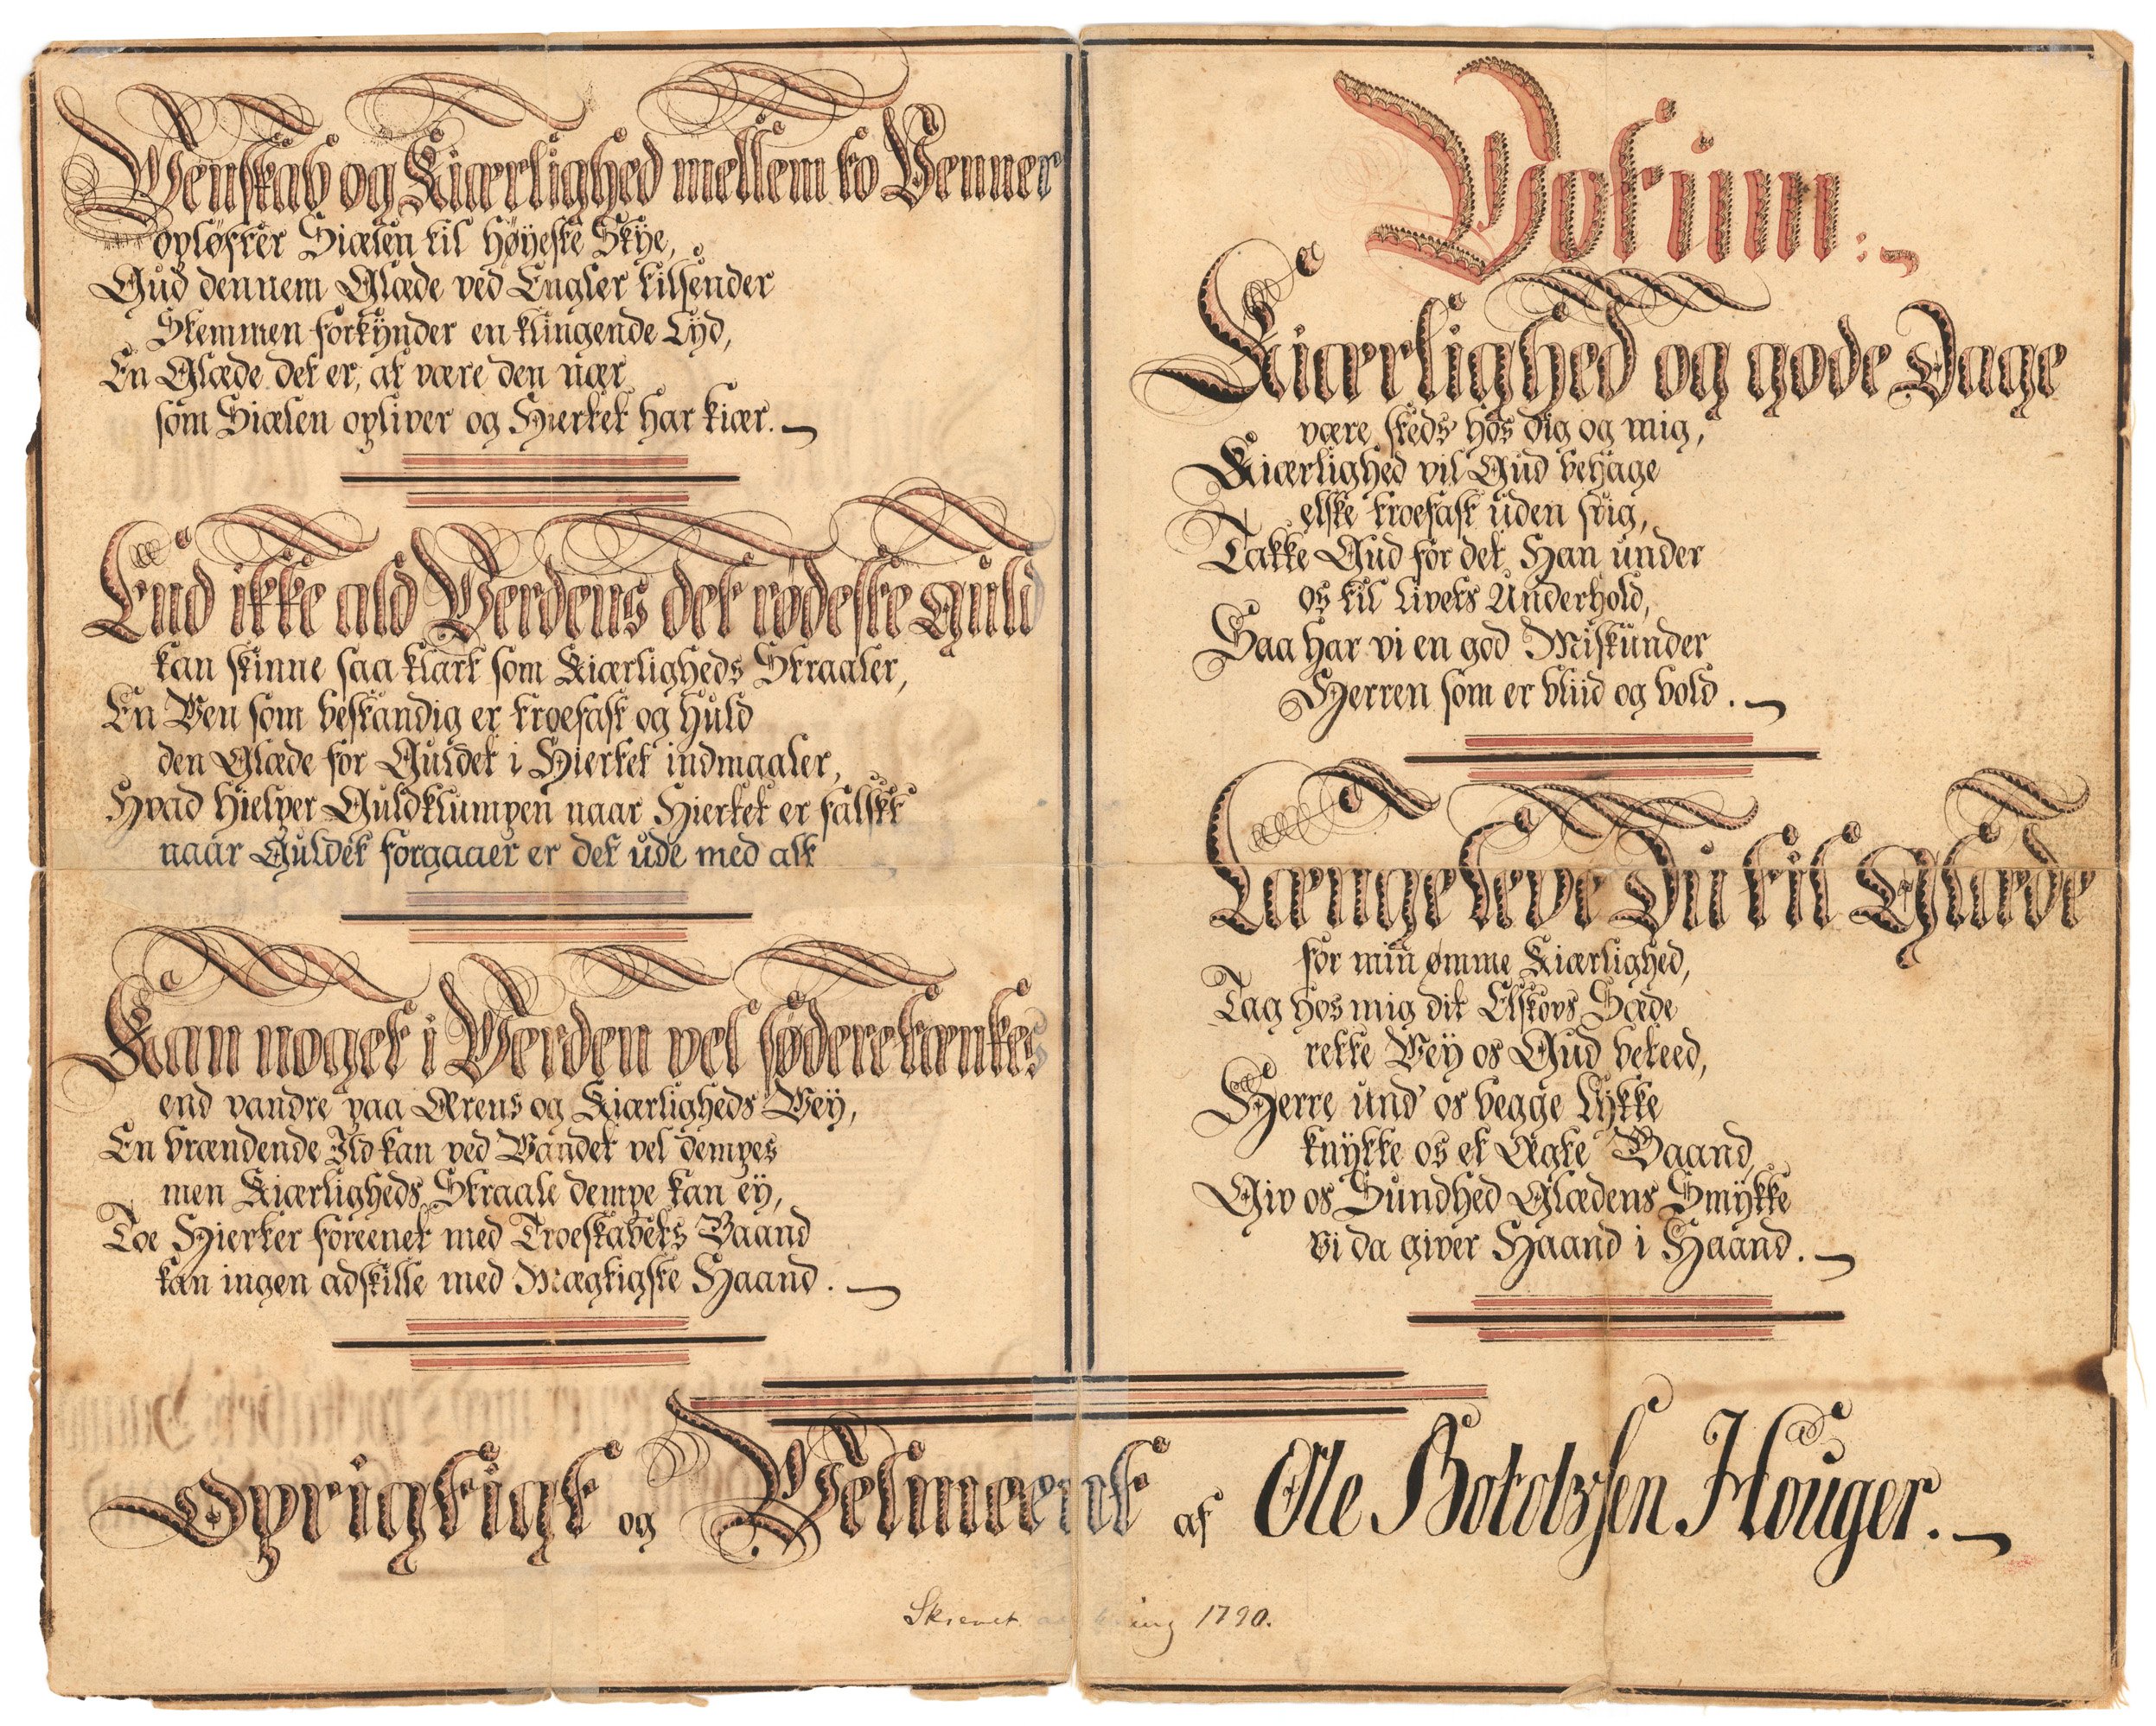 Wenskab og Kiærlighed mellem to Venner
opløfter Siælen til høyeste Skÿe,
Gud dennem Glæde ved Engler tilsender
Stemmen forkÿnder en klingende Lÿd,
En Glæde det er, at være den nær
som Siælen opliver og Hiertet har kiær.
End ikke ald Verdens det rødeste guld
kan skinne saa klart som Kiærligheds Straaler,
En Ven som bestandig er troefast og huld
den Glæde for Guldet i Hiertet indmaaler,
Hvad hielper Guldklumpen naar Hiertet er falskt
naar Guldet forgaaer er det ude med alt
Kan noget i Verden vel sødere tænkes
end vandre paa Ærens og Kiærligheds Veÿ,
En brændende Ild kan ved Vandet vel dempes
men Kiærligheds Straale dempe kan eÿ,
Toe Hierter foreenet med Troeskabets Baand
kan ingen adskille med Mægtigste Haand.
Votum
Kiærlighed og gode Dage
være steds hos dig og mig,
Kiærlighed vil Gud behage
elske troefast uden svig,
Takke Gud for det Han under
os til Livets Underhold,
Saa har vi en god Miskunder
Herren som er bliid og bold.
Længe leve Du til Glæde
for min ømme Kiærlighed,
Tag hos mig dit Elskovs Sæde
rette Veÿ os Gud beteed,
Herre und os begge Lÿkke
knÿtte os et Ægte Baand
Giv os Sundhed Glædens Smÿkke
vi da giver Haand i Haand.
Oprigtigt og Velmeent af Ole Botolvsen Houger.
Skrevet 1790.